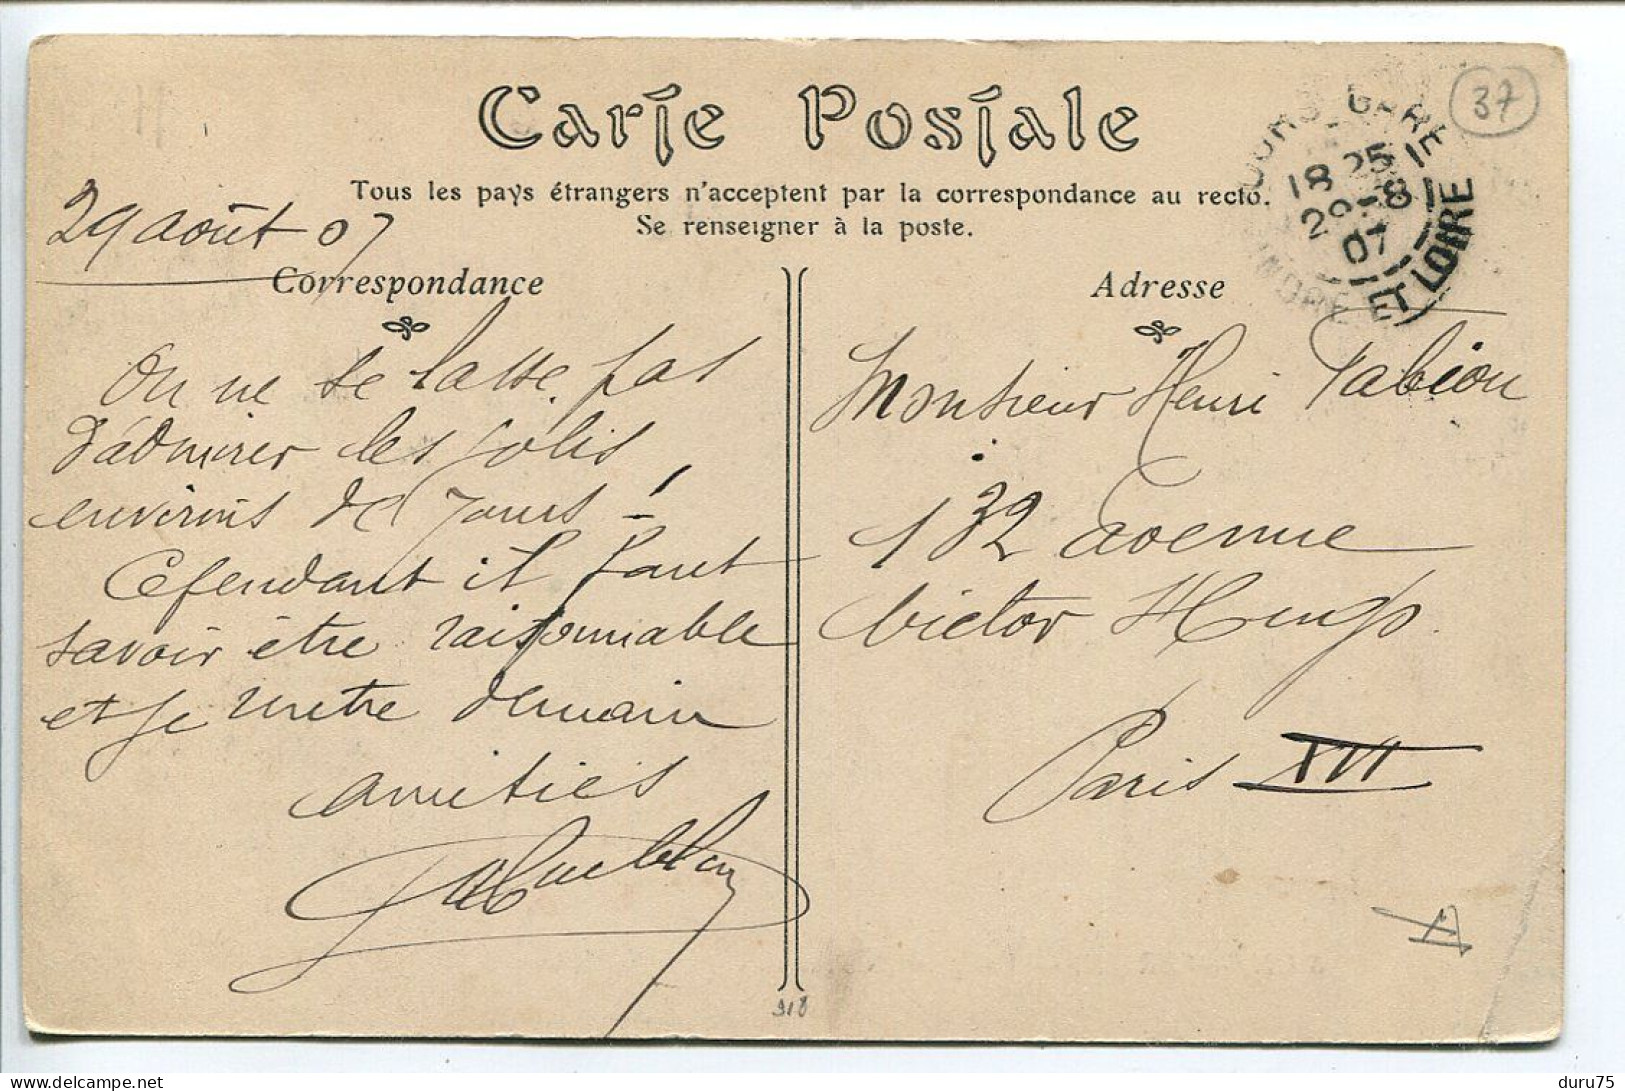 Carte Postale
37
Tous les pays étrangers n'acceptent par la correspondance au recto.
Se renseigner à la poste.
TOURS-GARE
18 25
29-8
07
INDRE ET LOIRE
29 août 07
Correspondance
On ne se lasse pas
d'admirer les jolis
environs de Tours !
Cependant il faut
savoir être raisonnable
et je rentre demain
amitiés
Adresse
Monsieur Henri Fabion
132 avenue
Victor Hugo
Paris XVI
918
delcampe.net
duru75